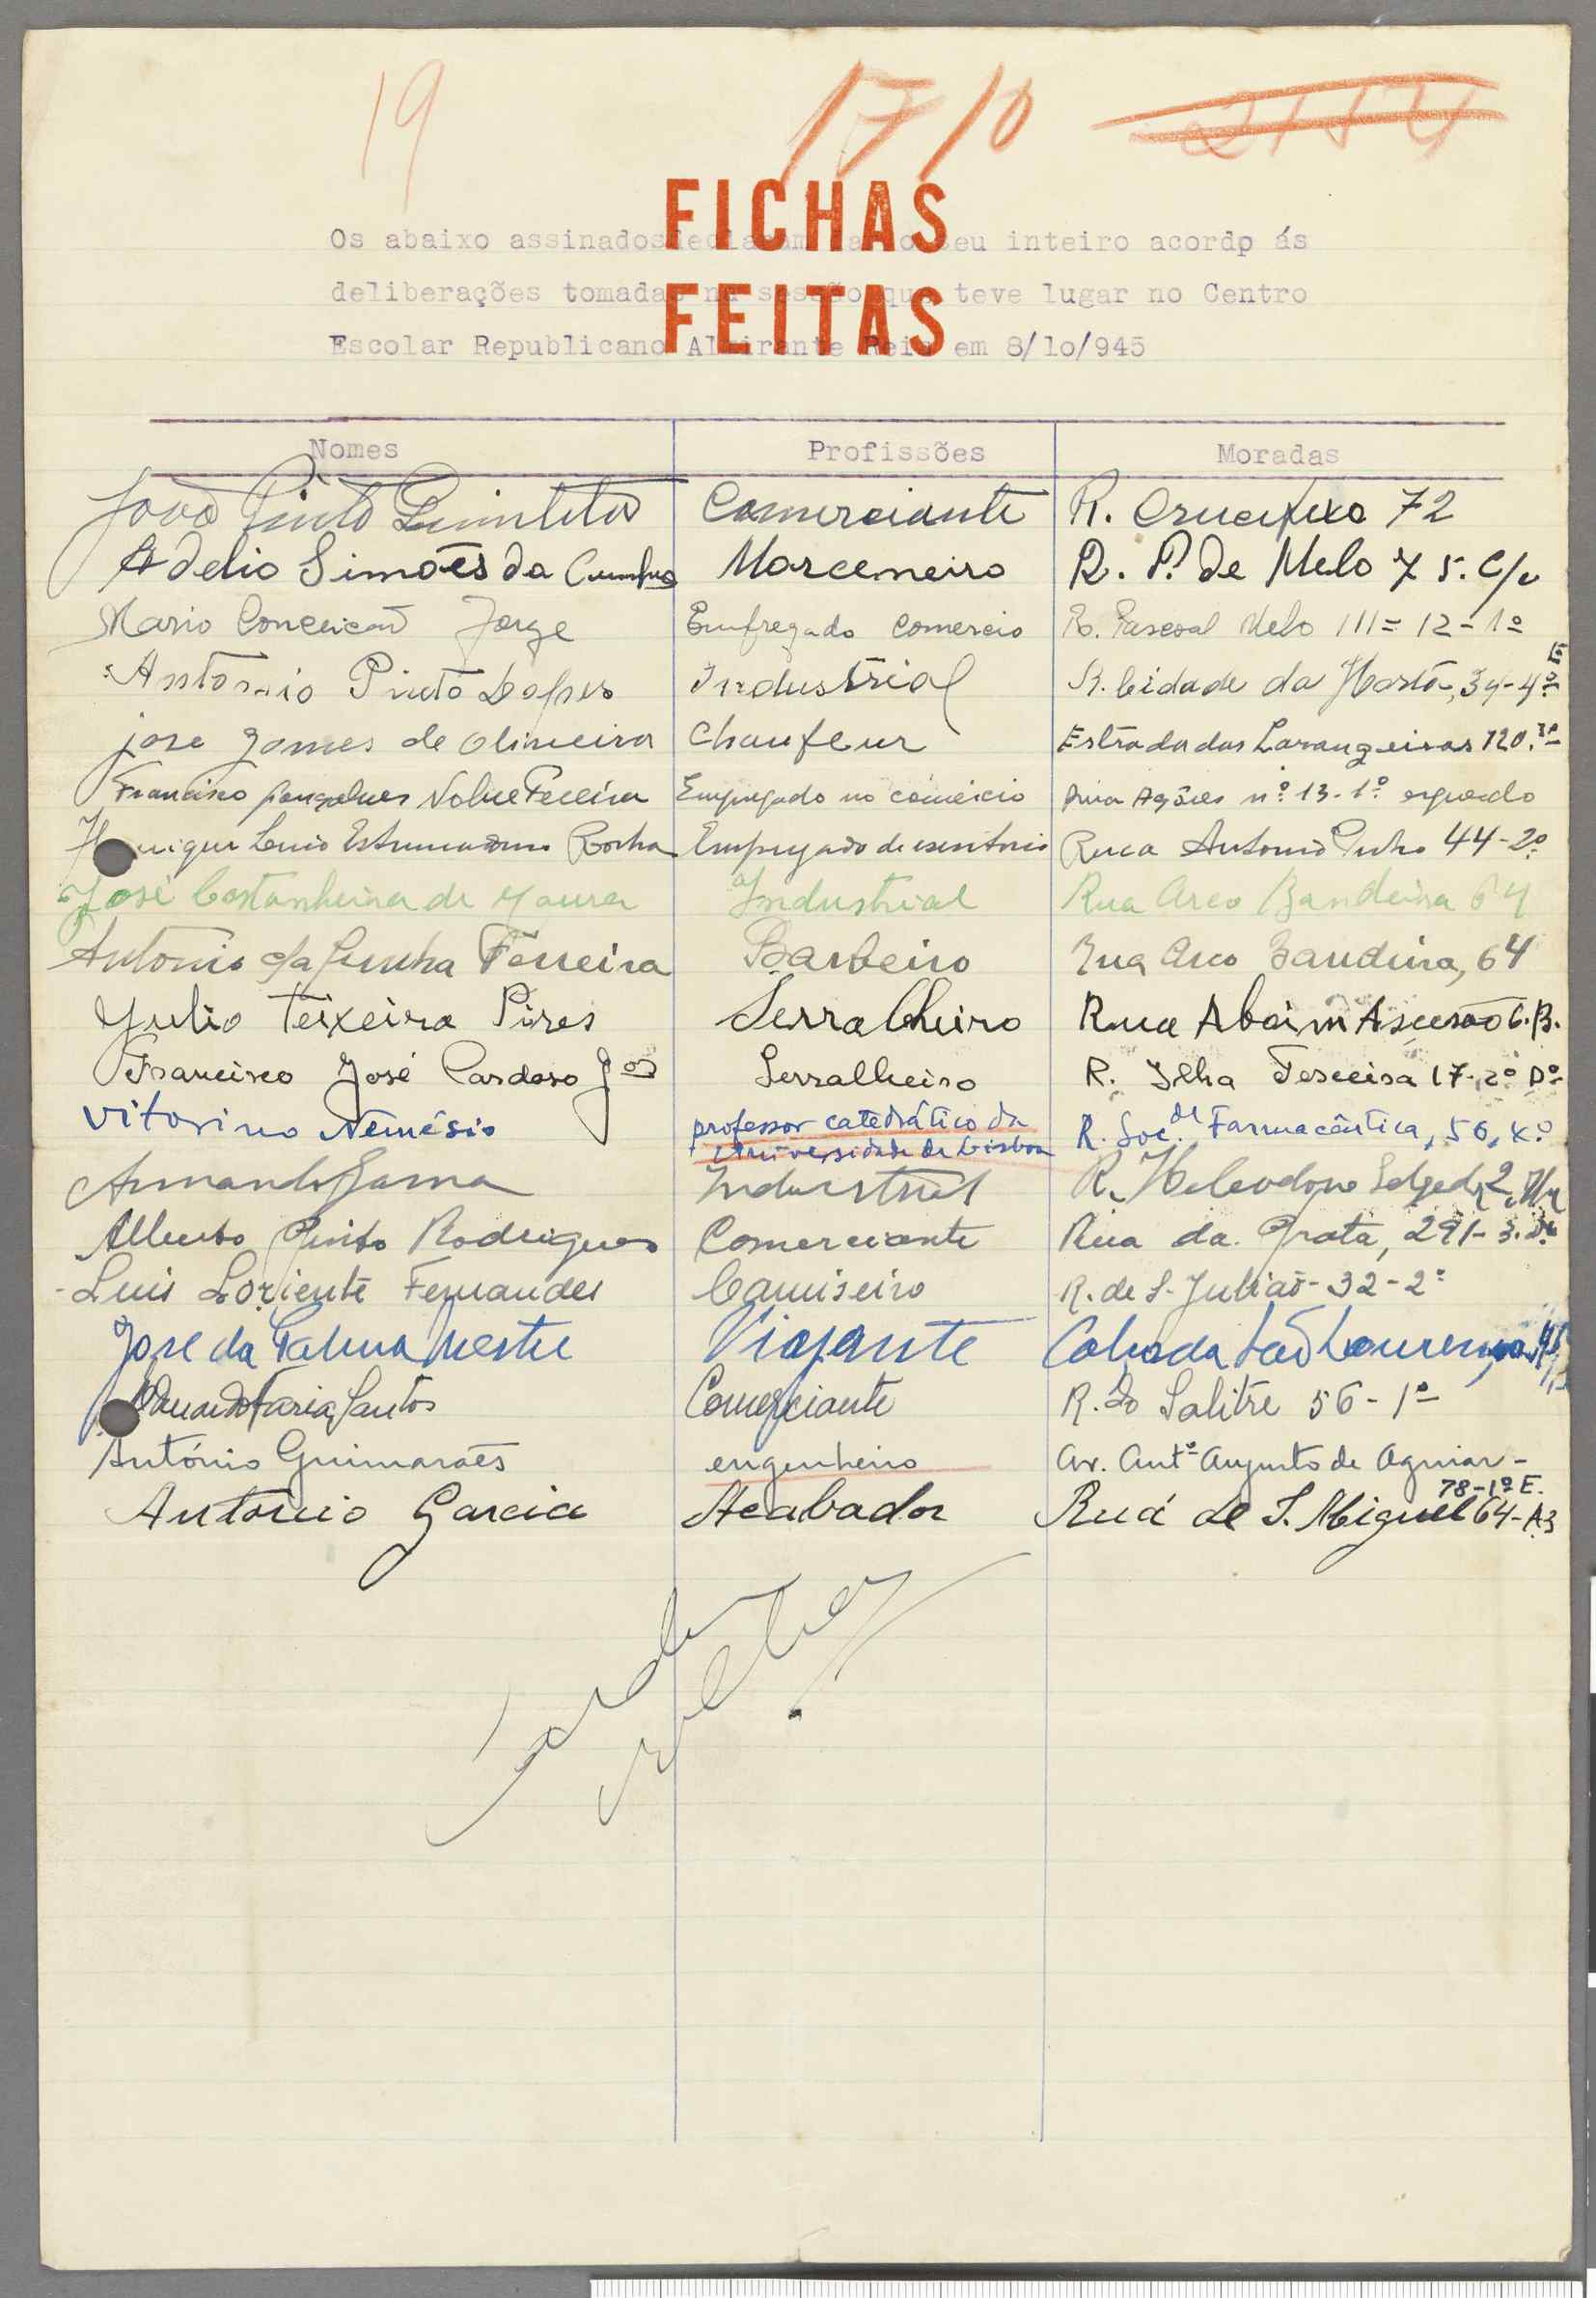 19 1710
FICHAS
Os abaixo assinados declaram seu inteiro acordp ás
FEITAS
deliberações tomadas na sessão que teve lugar no Centro
Escolar Republicano Almirante Reis em 8/10/945
Nomes Profissões Moradas
João Pinto Comerciante R. Crucifixo 72
Adelio Simões da Cunha Marceneiro R. P. de Melo 7 5. C/v
Mario Conceição Jorge Empregado Comercio R. Pascoal Melo 111= 12-1º
Antonio Pinto Lopes Industrial R. Cidade da Horta, 34-4º E
jose Gomes de Oliveira Chaufeur Estrada das Larangeiras 120
Francisco Gonçalves Nobre Pereira Empregado no comércio Rua Açores nº 13-1º esquerdo
Rocha Empregado de escritorio Rua Antonio Pinho 44-2º
José Castanheira de Moura Industrial Rua Arco Bandeira 64
Antonio da Cunha Ferreira Barbeiro Rua Arco Bandeira, 64
Julio Teixeira Pires Serralheiro Rua Aboim Ascensão
Francisco José Cardoso Jor Serralheiro R. Ilha Terceira 17-2º Dº
Vitorino Nemésio professor catedrático da R. Soc.de Farmacêutica, 56,
Universidade de Lisboa
Armando Gama Industrial R. Heliodoro Salgado
Alberto Pinto Rodrigues Comerciante Rua da Prata, 291-3.
Luis Loriente Fernandes Camiseiro R. de S. Julião-32-2º
Jose da Palma Mestre Viajante Calçada São Lourenço
Eduardo Faria Santos Comerciante R. do Salitre 56-1º
António Guimarães engenheiro Av. Antº Augusto de Aguiar-
78-1º E.
Antonio Garcia Acabador Rua de S. Miguel 64-